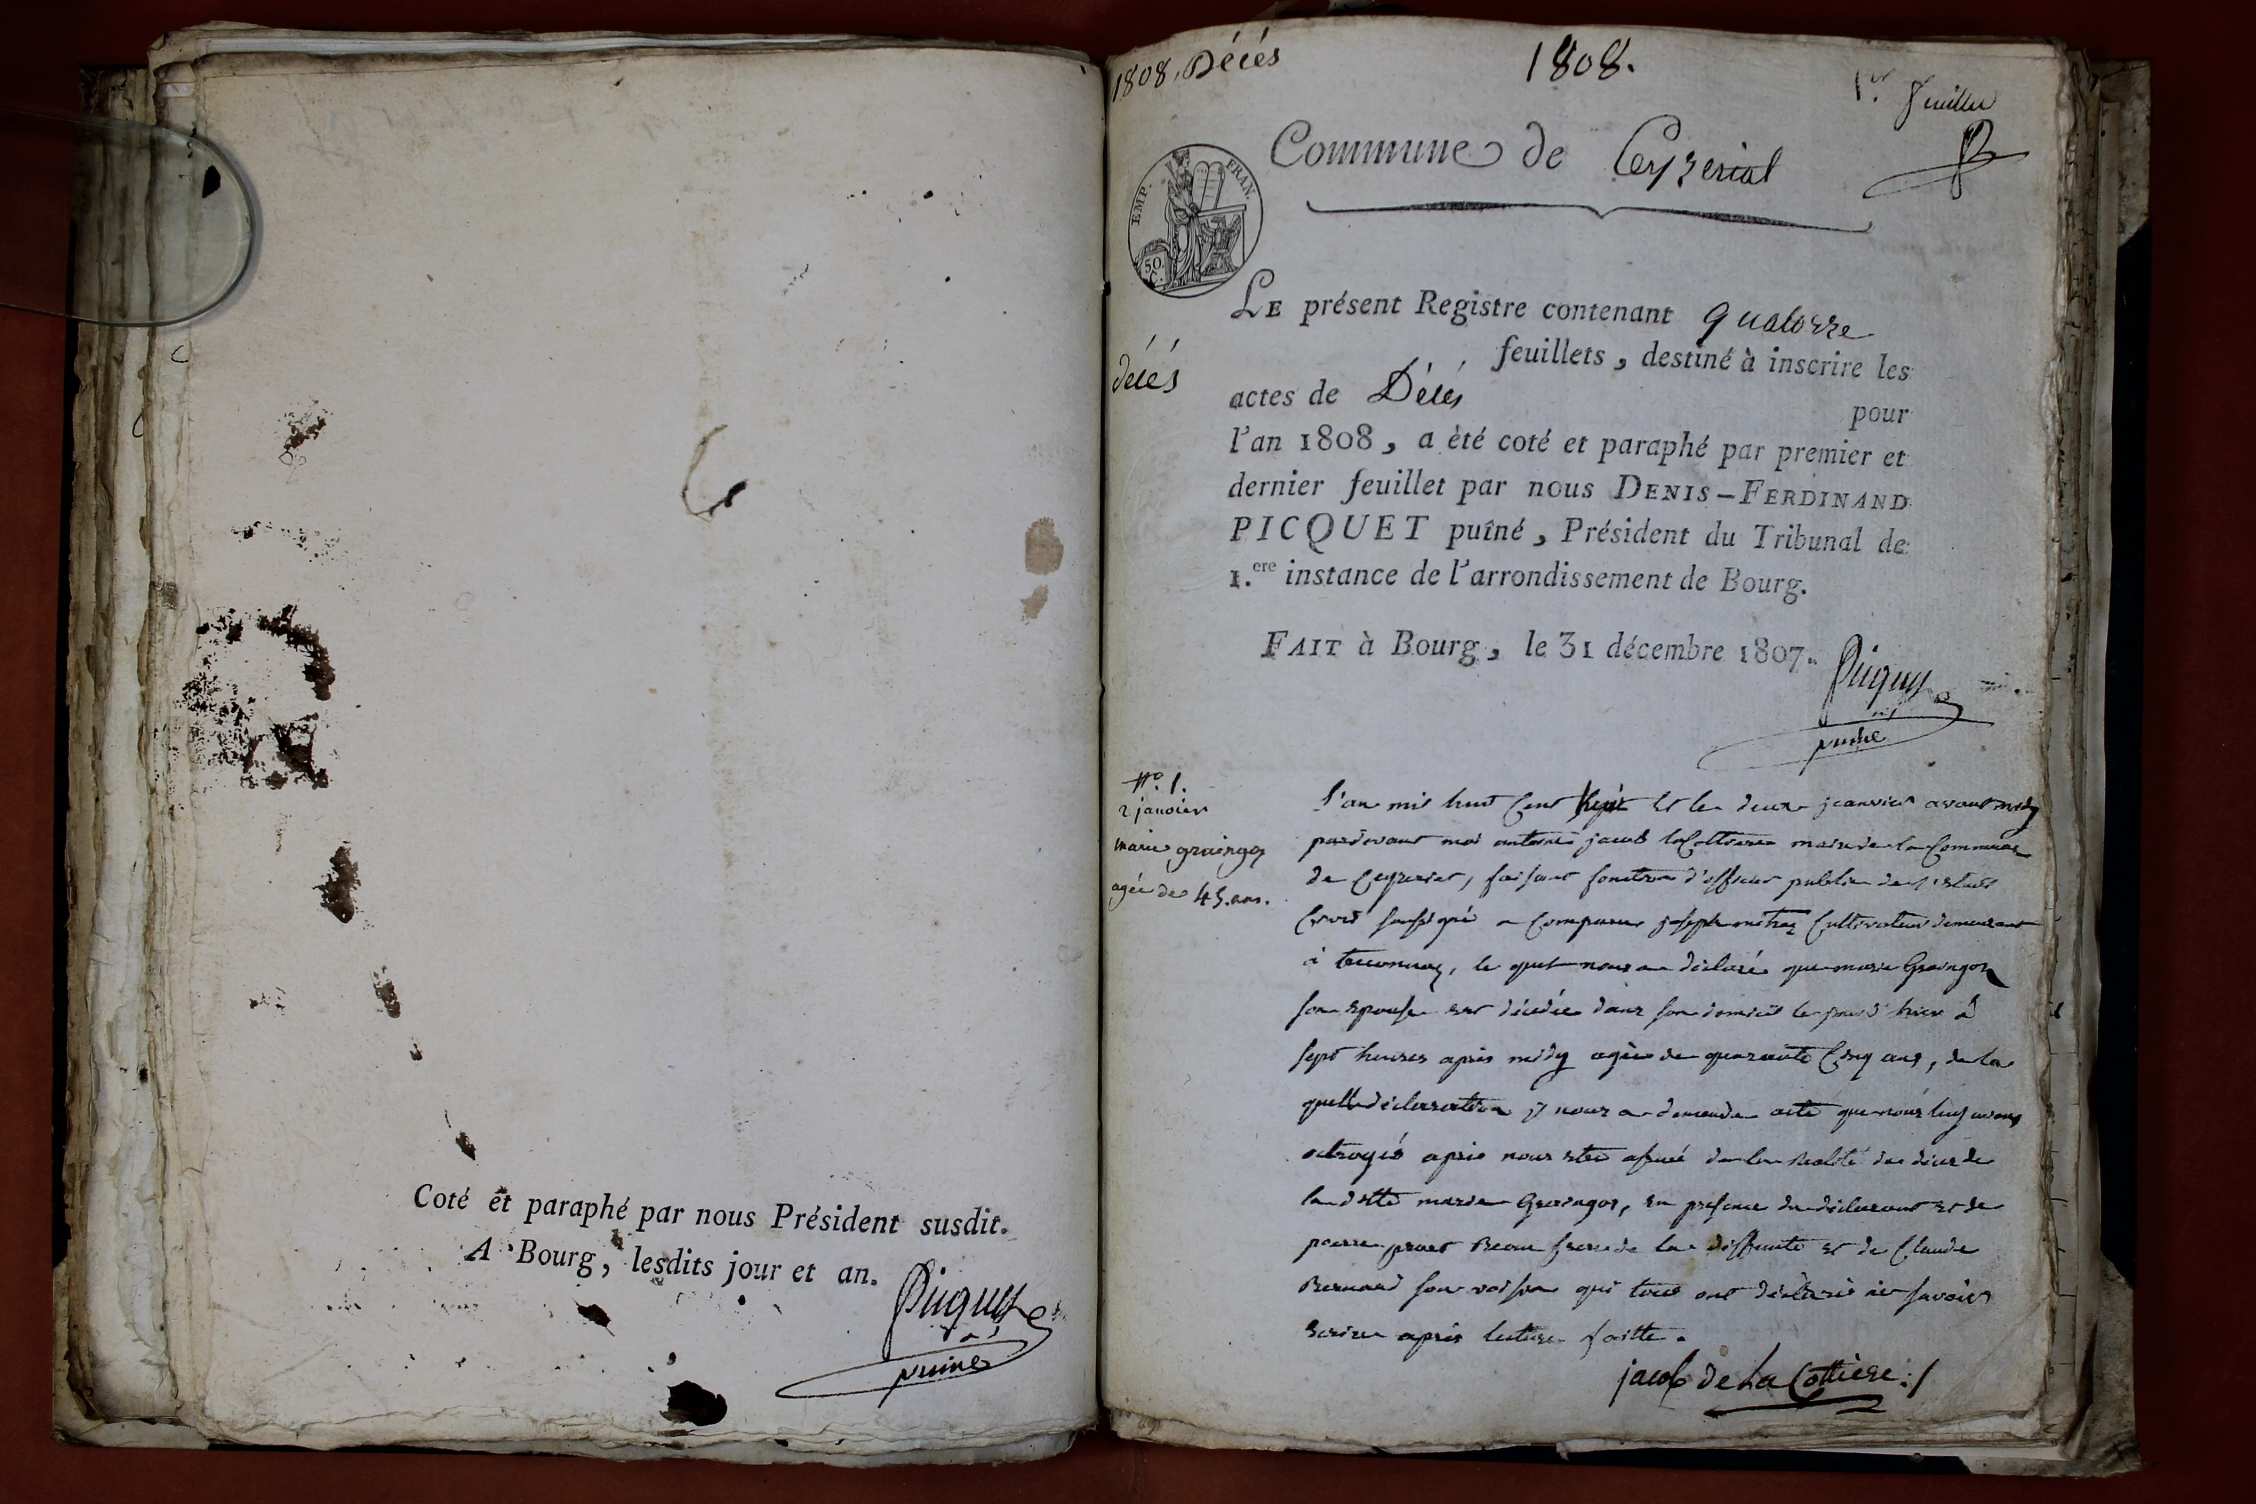 Coté et paraphé par nous Président susdit.
A Bourg, lesdits jour et an.
Picquet
puiné
1808. Décés
1808.
1er feuillet
Commune de Ceyzeriat
EMP. FRAN.
50.
C.
LE présent Registre contenant quatorze
feuillets, destiné à inscrire les
décés
actes de Décés pour
l'an 1808, a été coté et paraphé par premier et
dernier feuillet par nous DENIS-FERDINAND
PICQUET puîné, Président du Tribunal de
1.ere instance de l'arrondissement de Bourg.
FAIT à Bourg, le 31 décembre 1807.
Picquet
puiné
No. 1.
2 janvier
marie graingos
agée de 45 ans.
L'an mil huit Cent huit et le deux janvier avant midy
pardevant moi antoine jacob laCottiere maire de la Commune
de Ceyzeriat, faisant fonction d'officier public de l'etat
Civil soussigné a Comparu joseph Cultivateur demeurant
à, le quel nous a déclaré que marie Graingos
son epouse est décédée dans son domicile le jour d'hier à
sept heures après midy agée de quarante Cinq ans, de la
quelle déclaration il nous a demandé acte que nous luy avons
octroyés après nous etre assuré de la realité du décés de
la ditte marie Graingos, en presence du déclarant et de
pierre Beau frere de la deffunte et de Claude
Bernard son voisin qui tous ont déclaré ne savoir
ecrire après lecture faitte.
jacob de La Cottiere